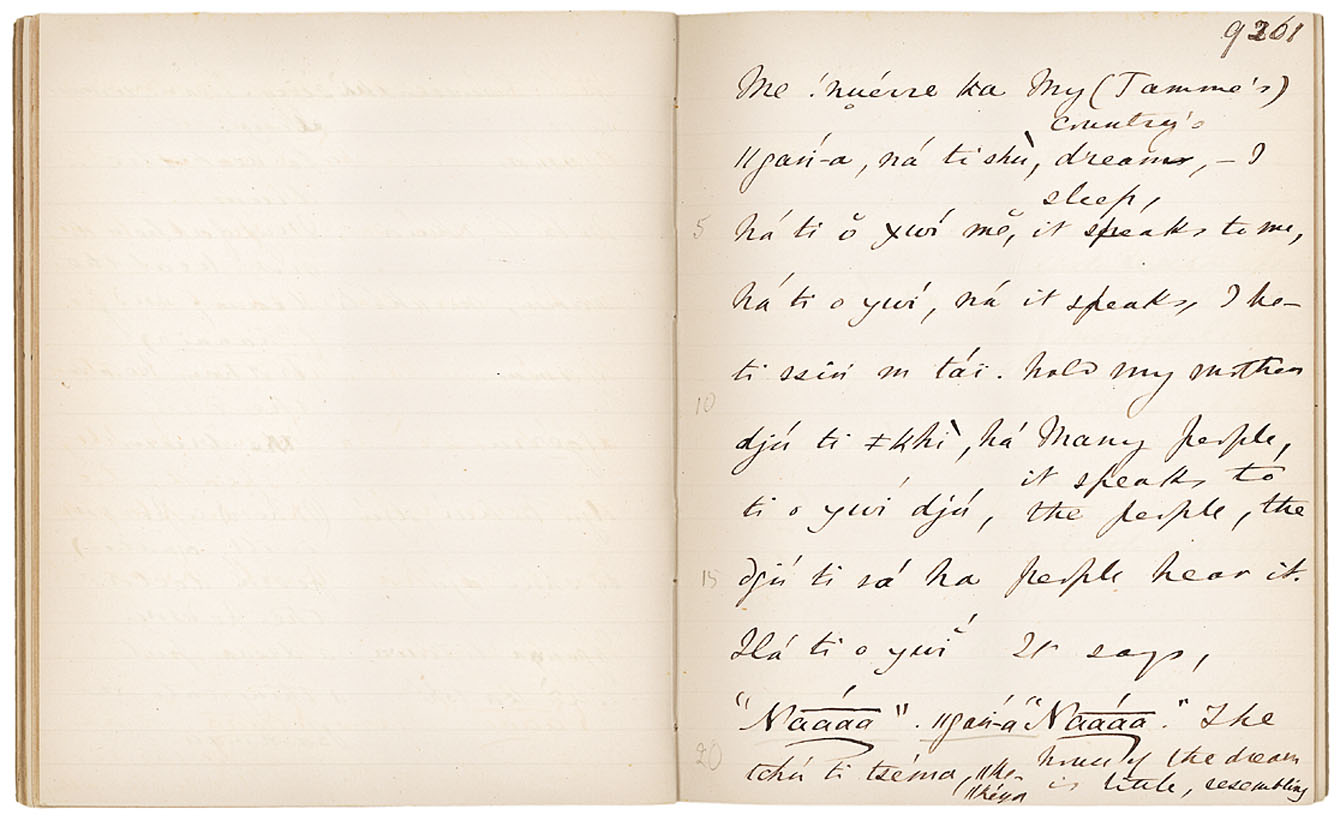 9261
Me !nuérre ka My (Tamme's)
country's
||gañ-a, ná ti shù, dream, – I
sleep,
5 há ti ŏ χwí mĕ, it speaks to me,
há ti o ywí, ná it speaks, I be-
ti szíń m táï. hold my mother
10
djú ti ǂkhì, há Many people,
it speaks to
ti o ywí djú, the people, the
15 djú ti sá ha people hear it.
Há ti o ywí It says,
"Naáaa". ||gañ-á "Naáaa." The
20 tchú ti tséma, ||ke- house of the dream
||kéya is little, resembling